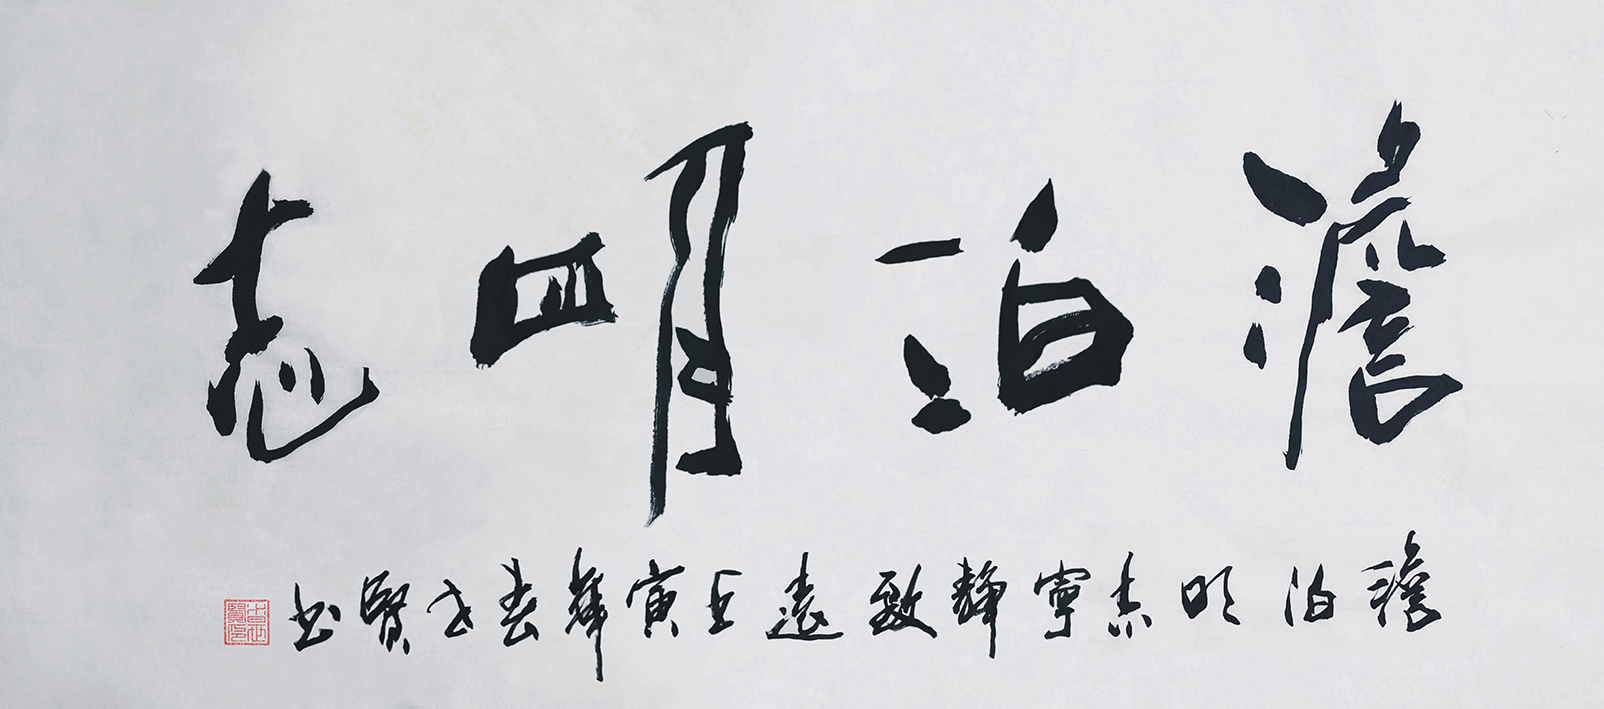 澹泊明志
澹泊明志寧靜致遠壬寅春賢书